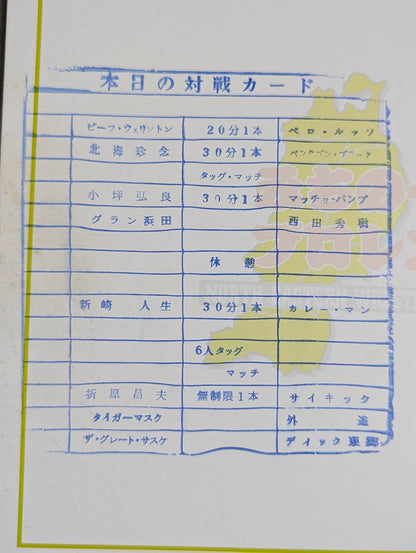 本日の対戦カード
ビーフ・ウェリントン 20分1本 ペロ・ルッソ
北海珍念 30分1本 ペンタゴン・ブラック
タッグ・マッチ
小坪弘良 30分1本 マッチョ・パンプ
グラン浜田 西田秀樹
休憩
新崎人生 30分1本 カレー・マン
6人タッグ
マッチ
折原昌夫 無制限1本 サイキック
タイガーマスク 外道
ザ・グレート・サスケ ディック東郷